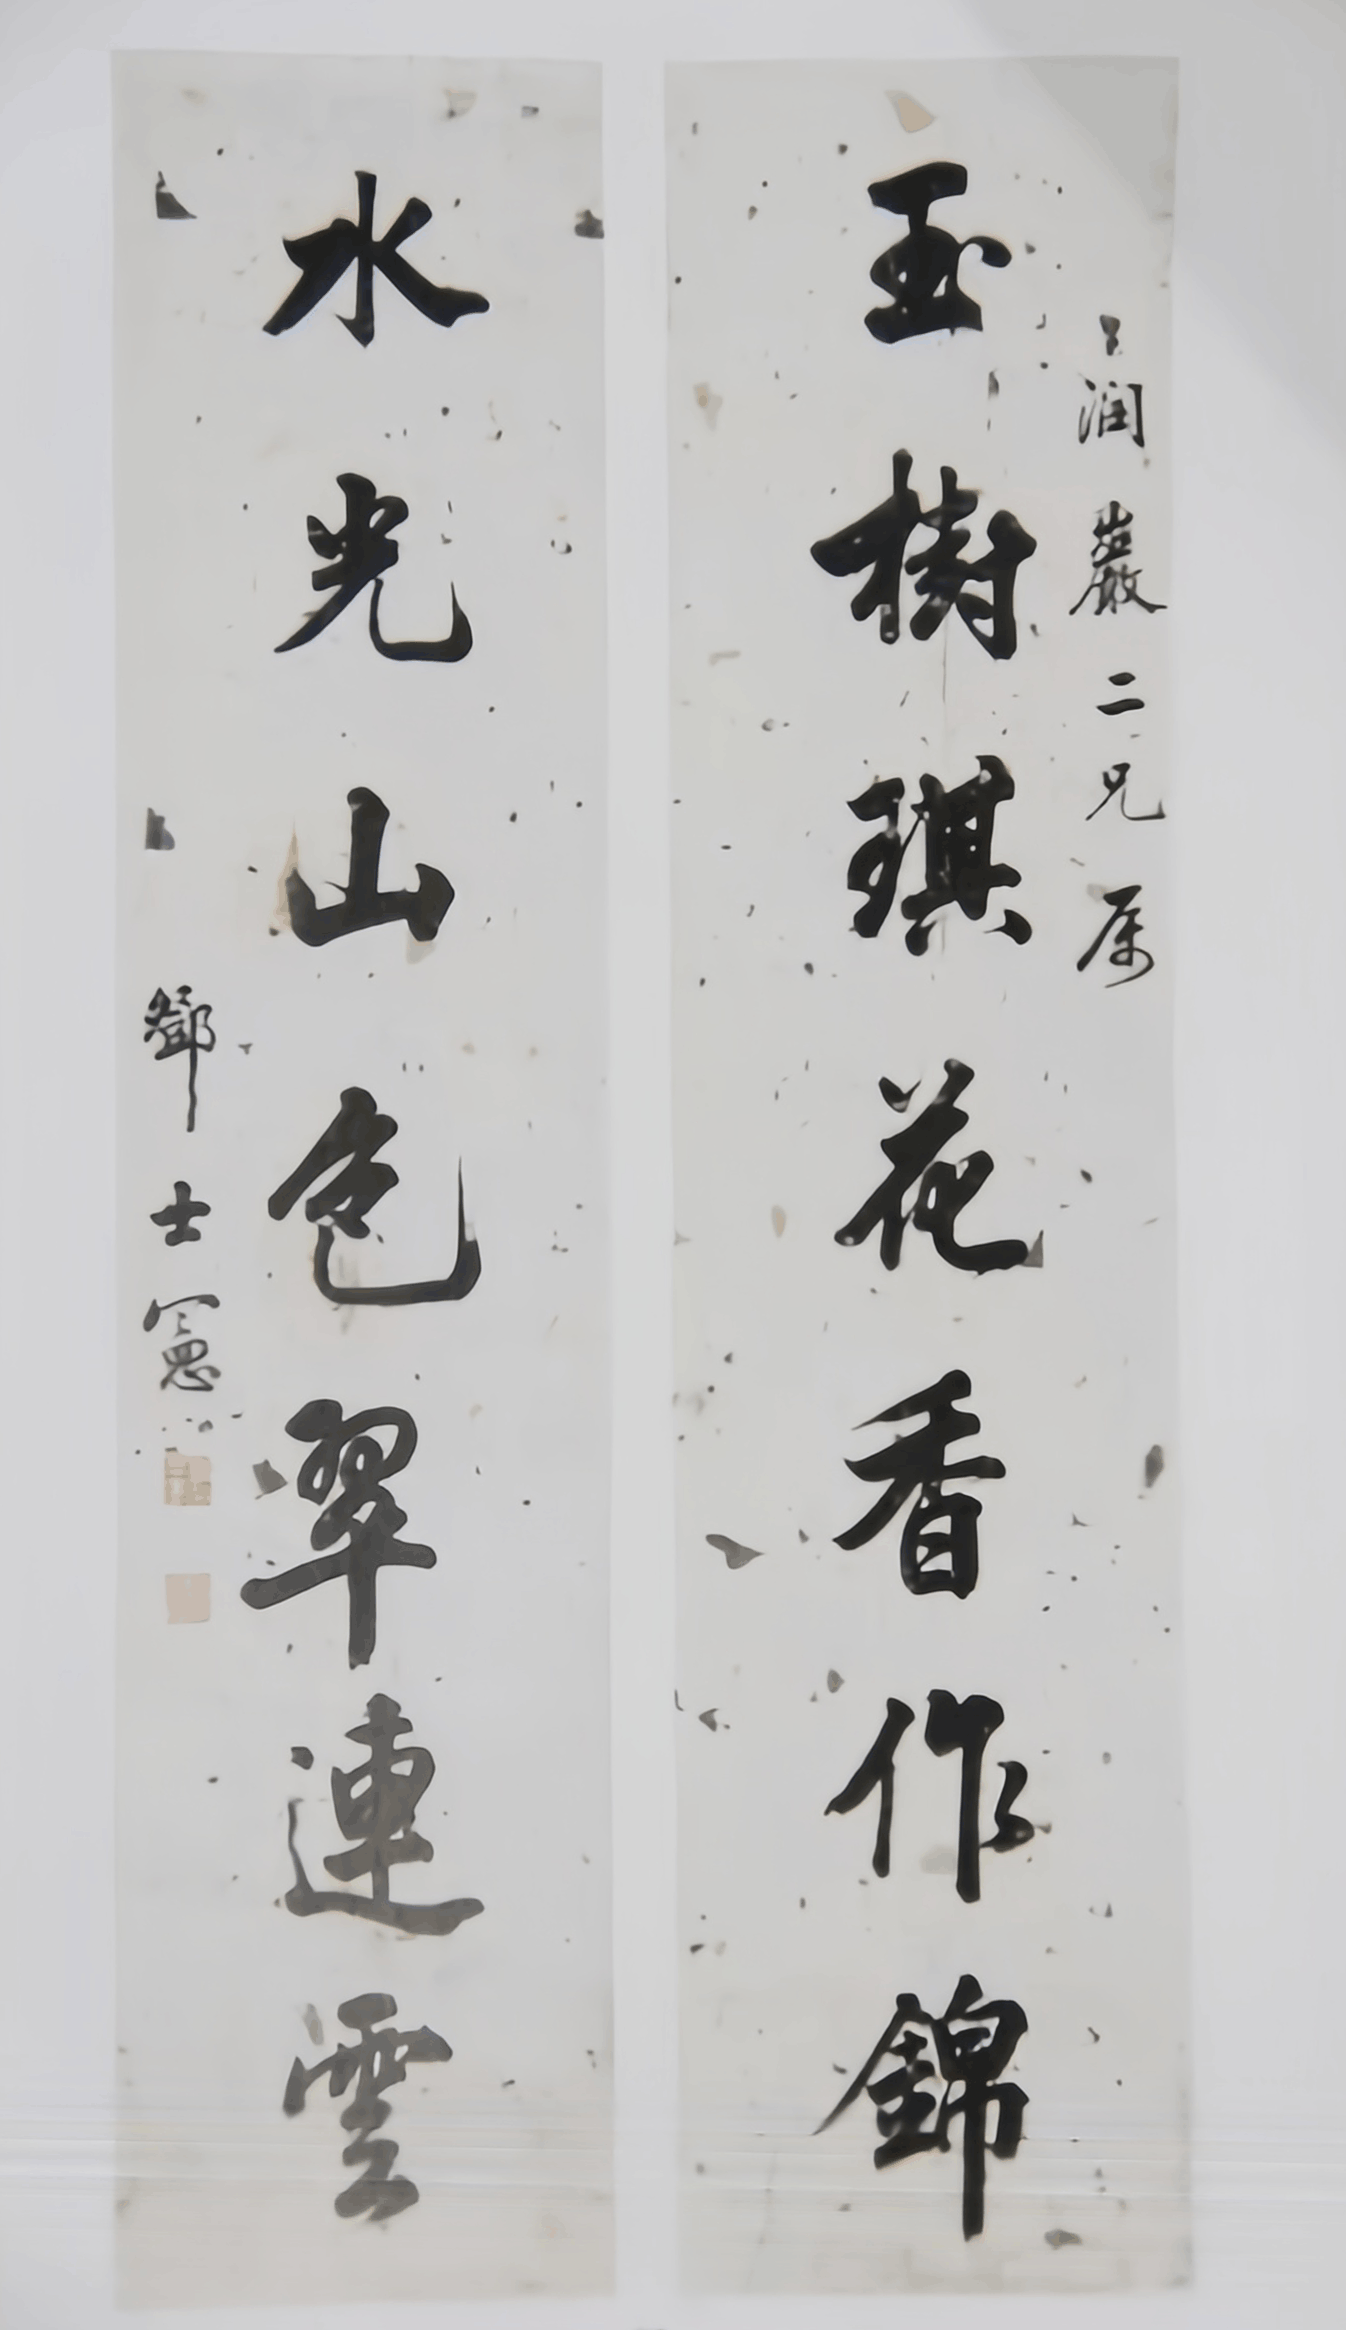 潤巖二兄属
玉樹琪花香作錦
水光山色翠連雲
鄧士憲